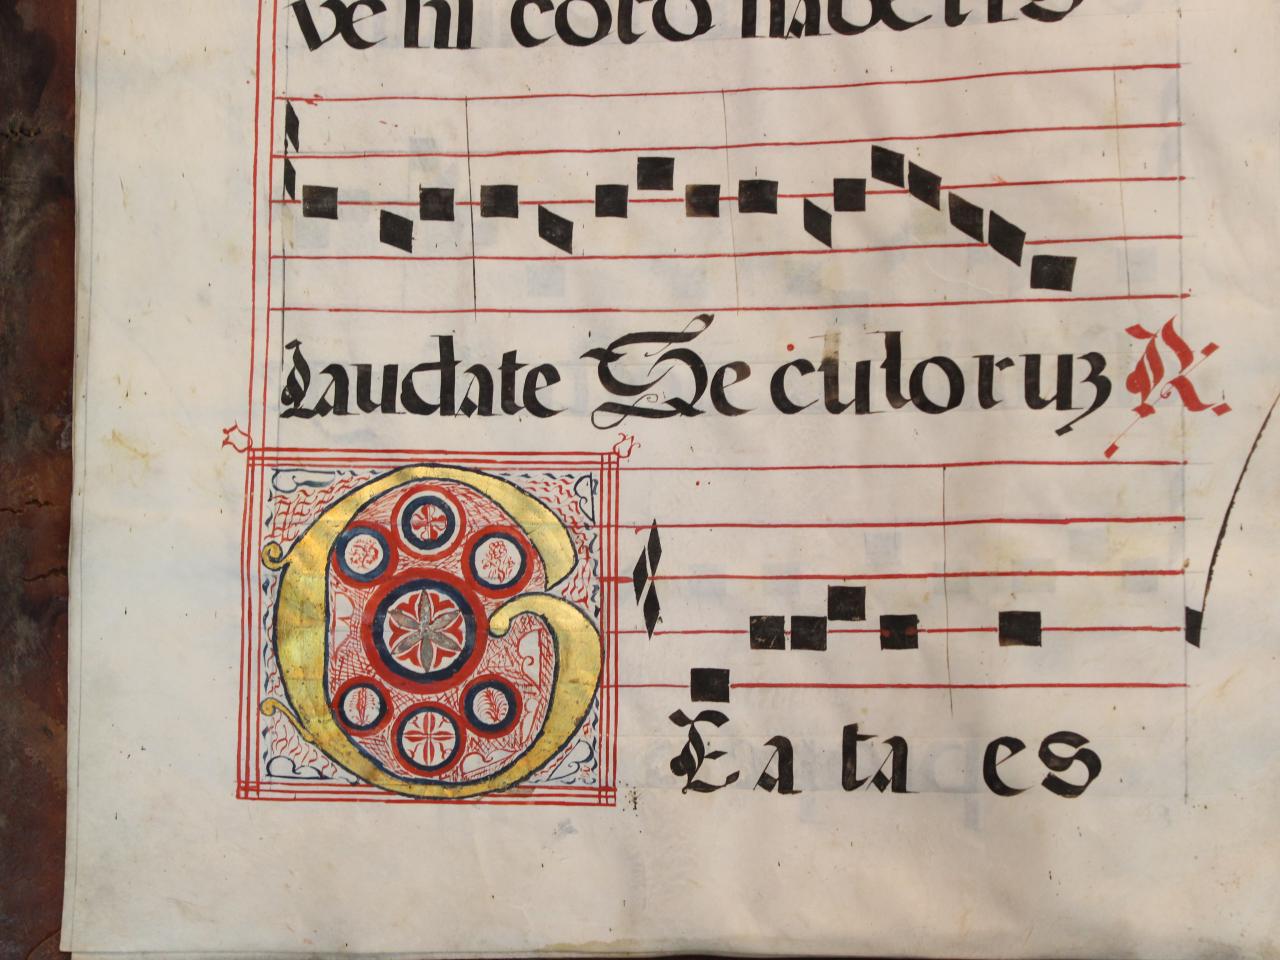 ve ni coro habetis
laudate Se culoruꝫ R.
G Ea ta es